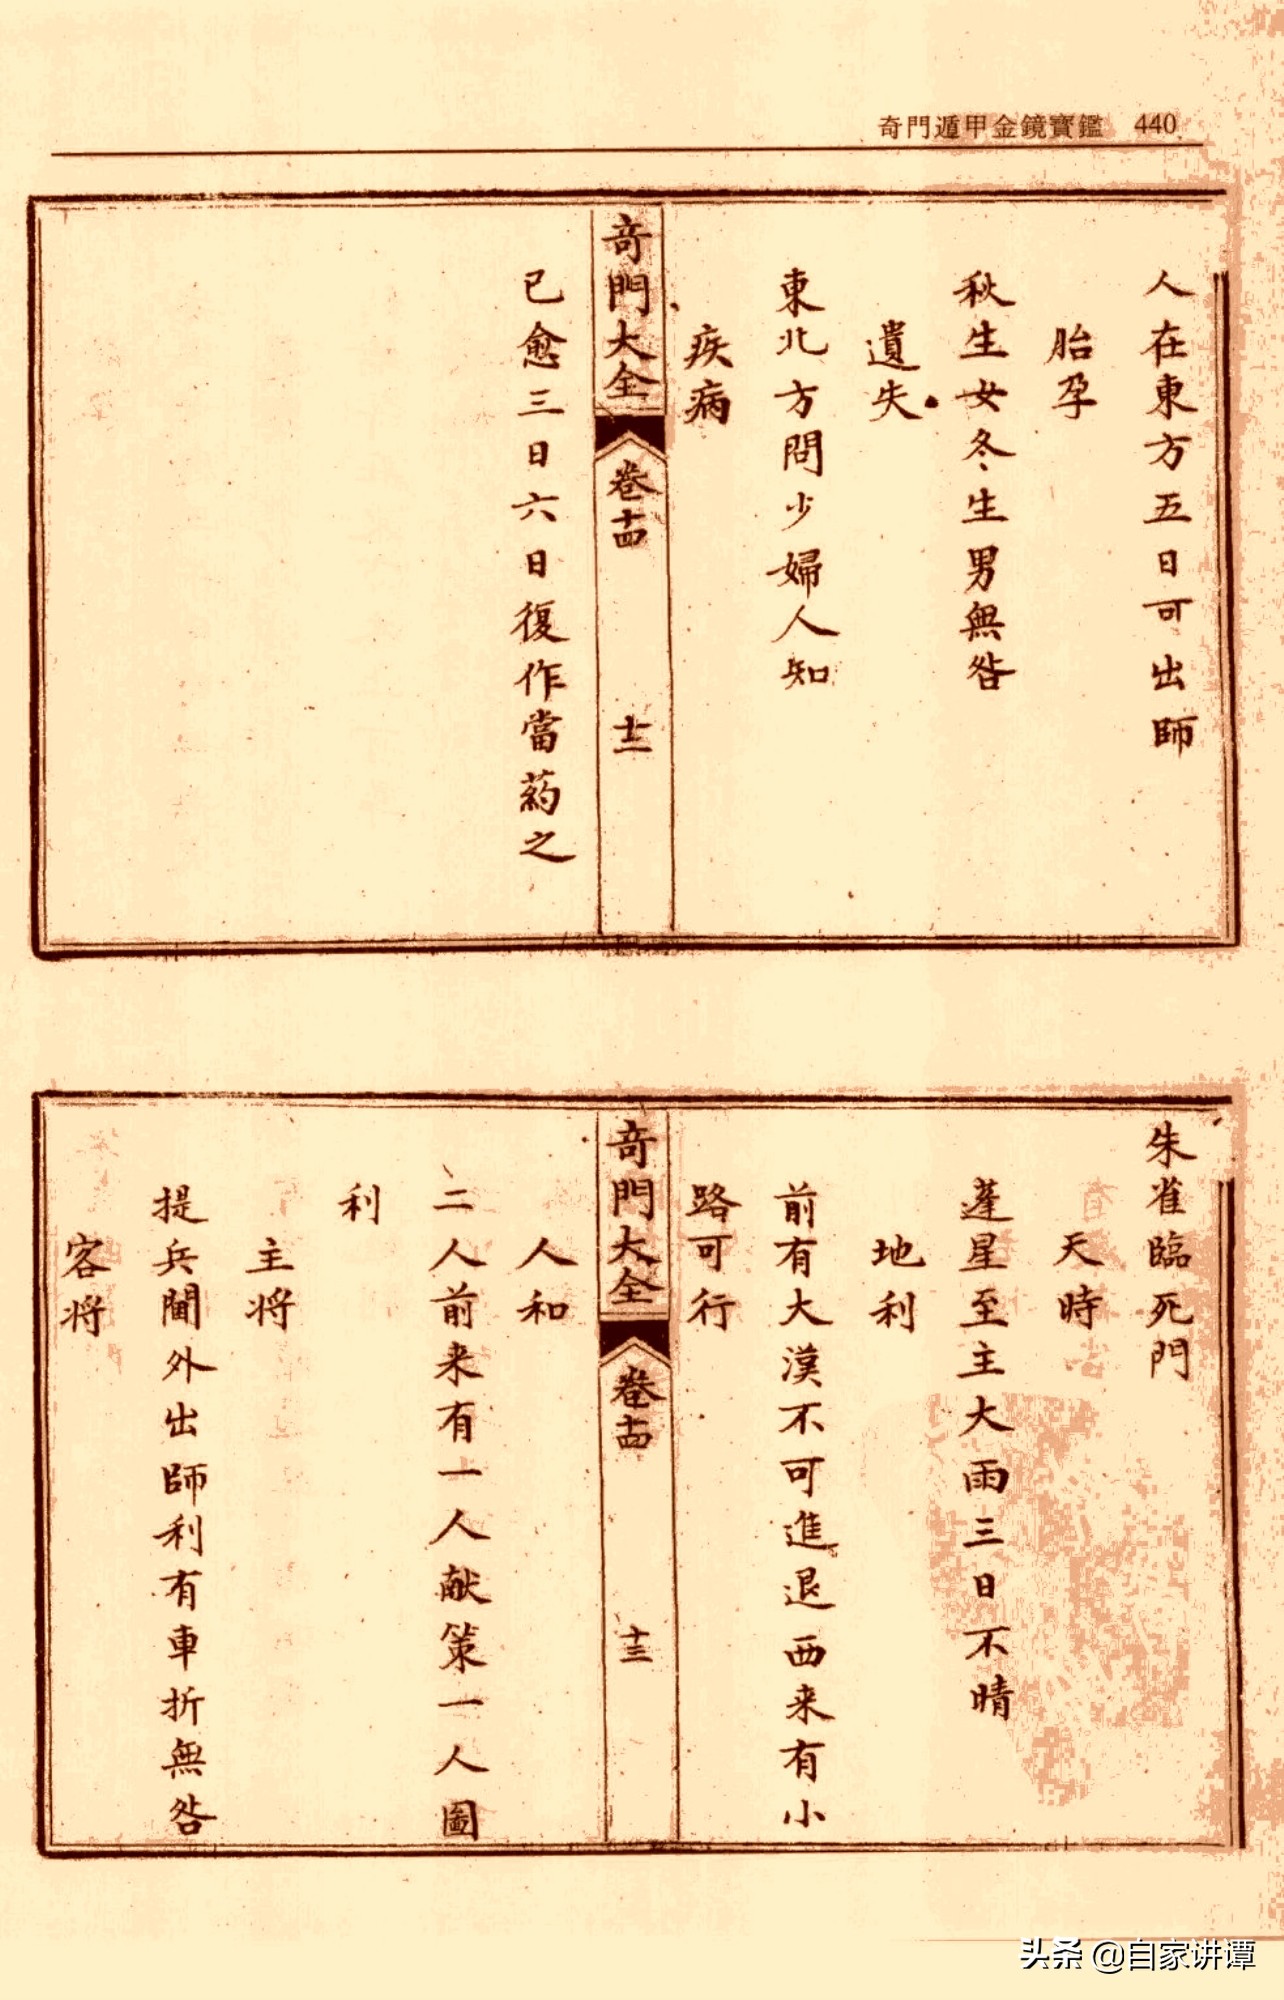 奇門遁甲金鏡寶鑑 440
人在東方五日可出師
胎孕
秋生女冬生男無咎
遺失
東北方問少婦人知
疾病
奇門大全 卷十四 十二
已愈三日六日復作當葯之
朱雀臨死門
天時
蓬星至主大雨三日不晴
地利
前有大漠不可進退西来有小
路可行
奇門大全 卷十四 十三
人和
二人前来有一人献策一人圖
利
主将
提兵閫外出師利有車折無咎
客将
头条 @自家讲谭